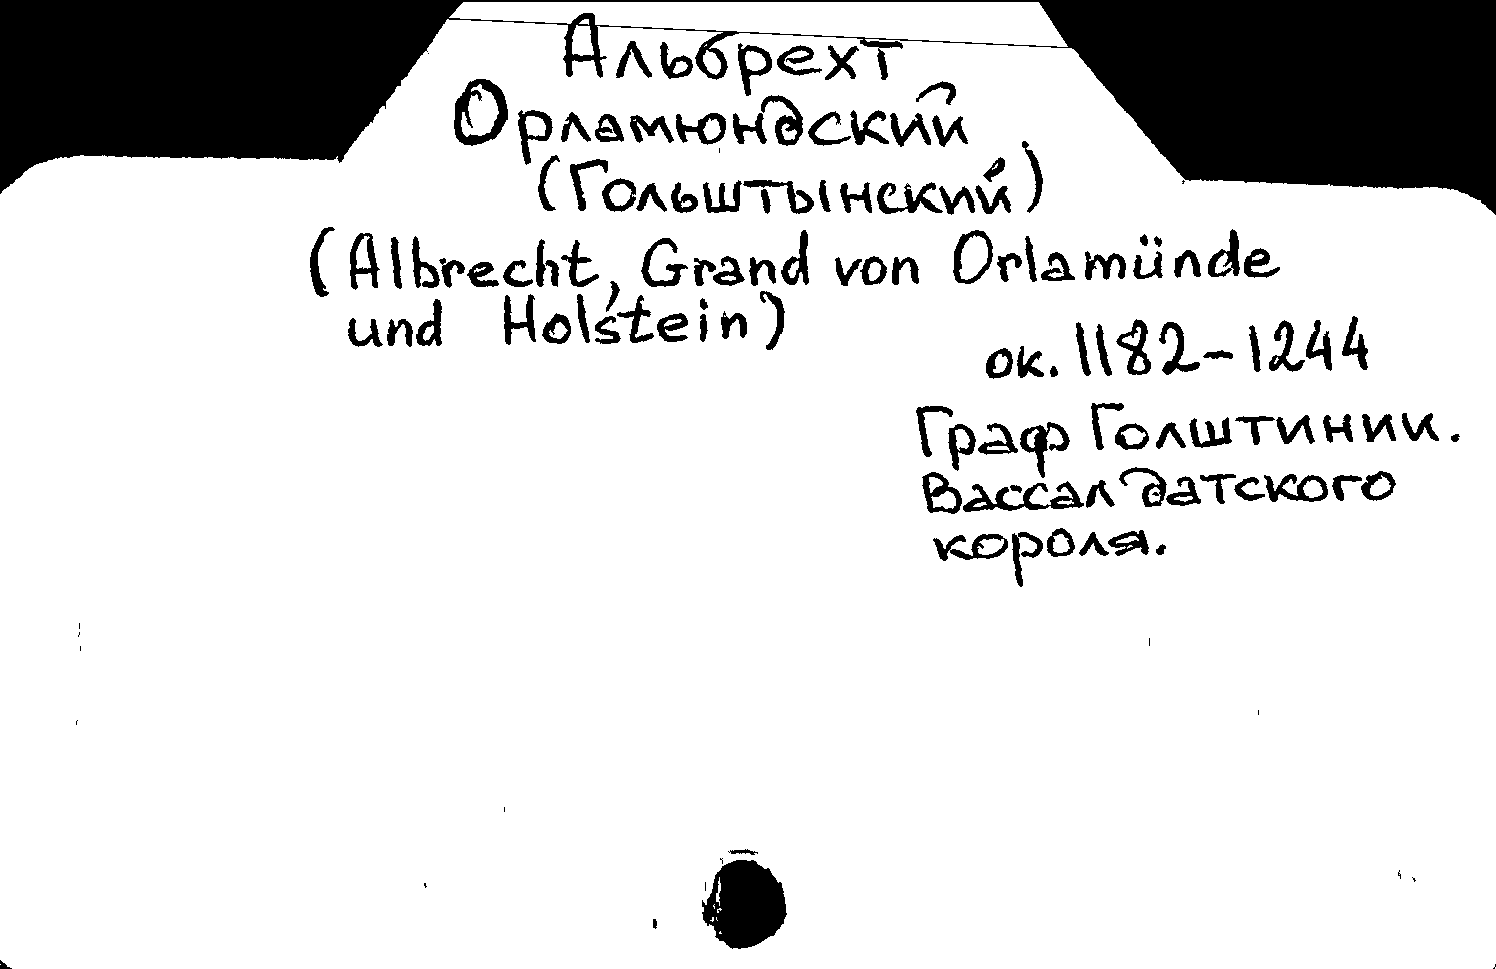 Альбрехт
Орламюндский
(Гольштынский)
(Albrecht, Grand von Orlamünde
und Holstein)
ок. 1182-1244
Граф Голштинии.
Вассал датского
короля.